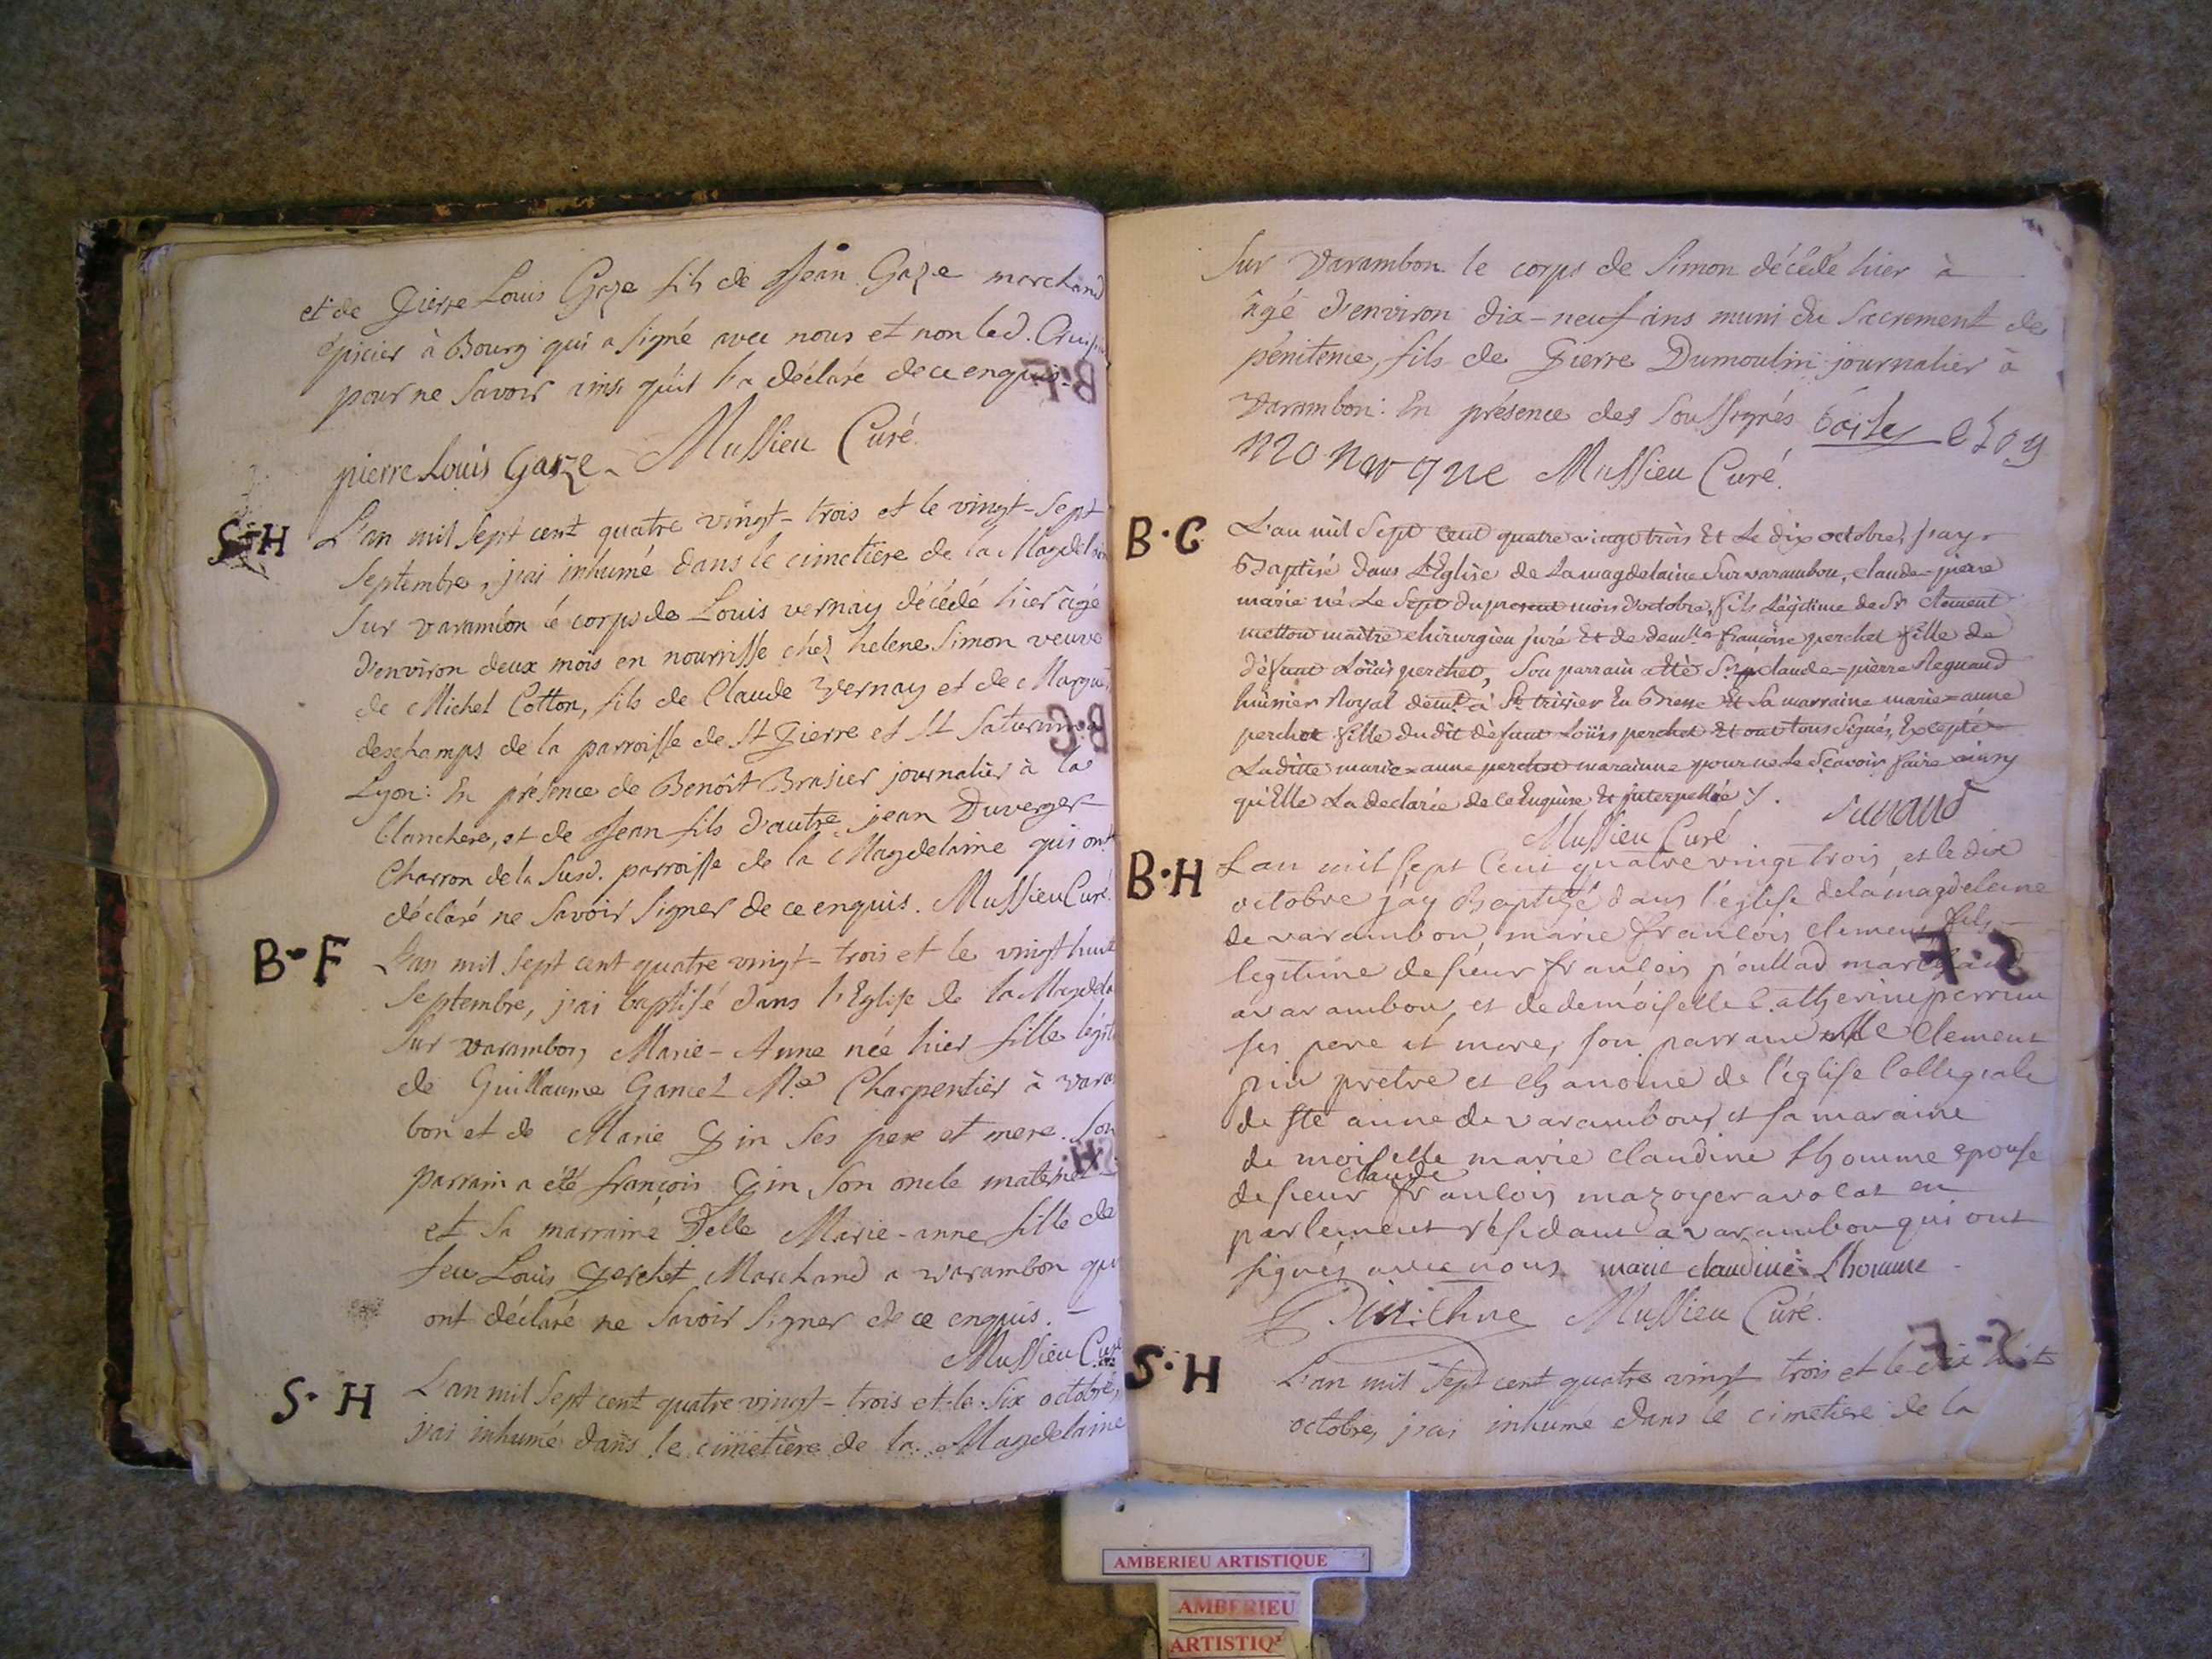 et de Pierre Louis Gaze fils de Jean Gaze marchand
épicier à Bourg qui a signé avec nous et non led.
pour ne savoir ainsi qu'il l'a déclaré de ce enquis.
pierre Louis Gaze Mussieu Curé
S-H
L'an mil sept cent quatre vingt-trois et le vingt-sept
septembre, j'ai inhumé dans le cimetière de la Magdelaine
sur varambon le corps de Louis vernay décédé hier âgé
d'environ deux mois en nourrisse chez helene Simon veuve
de Michel Cotton, fils de Claude Vernay et de
deschamps de la parroisse de St Pierre et St Saturnin
Lyon: En présence de Benoît Brasier journalier à la
blanchere, et de Jean fils d'autre jean Duverger
Charron de la susd. parroisse de la Magdelaine qui ont
déclaré ne savoir signer de ce enquis. Mussieu Curé.
B-F
L'an mil sept cent quatre vingt-trois et le vingt huit
septembre, j'ai baptisé dans l'Eglise de la
sur varambon, Marie-Anne née hier fille
de Guillaume Gancel Me Charpentier à varam
bon et de Marie Pin ses pere et mere. son
parrain a été françois Pin, son oncle maternel
et sa marraine Delle Marie-anne fille de
feu Louis Perchet Marchand a varambon qui
ont déclaré ne savoir signer de ce enquis.
Mussieu Curé
S. H
L'an mil sept cent quatre vingt-trois et le six octobre,
j'ai inhumé dans le cimetière de la Magdelaine
sur Varambon le corps de Simon décédé hier à
âgé d'environ dix-neuf ans muni du sacrement de
pénitence, fils de Pierre Dumoulin journalier à
Varambon: En présence des soussignés
Mussieu Curé.
B.G
L'an mil sept cent quatre vingt trois Et Le dix octobre, j'ay
Baptisé dans L'Eglise de Lamagdelaine sur varambon, claude-pierre
marie né Le sept du present mois d'octobre, fils Légitime de Sr clement
metton maitre chirurgien juré Et de demlle françoise perchet fille de
défunt Loüis perchet, son parrain a êtê Sr claude-pierre Regnaud
huissier Royal demt à St trivier En Bresse Et sa marraine marie-anne
perchet fille du dit défunt Loüis perchet Et ont tous signés, Excepté
Laditte marie-anne perchet marainne pour ne Le sçavoir faire ainsy
qu'Elle La declarée de ce Enquise Et interpellée ./.
Mussieu Curé
B.H
L'an mil sept Cent quatre vingt trois et le dix
octobre j'ay Baptizé dans l'église de la magdelaine
de varambon, marie françois clement fils
legitime de sieur françois poullad marchand
a varambon, et de demoiselle Catherine perrin
ses pere et mere, son parrain Clement
pin prêtre et chanoine de l'église Collegiale
de ste anne de varambon, et sa maraine
demoiselle marie claudine Lhomme epouse
claude
de sieur françois mazoyer avocat en
parlement résidant a varambon qui ont
signés avec nous. marie claudine Lhomme
Mussieu Curé.
S.H
L'an mil sept cent quatre vingt trois et le dix huit
octobre, j'ai inhumé dans le cimetière de la
AMBERIEU ARTISTIQUE
AMBERIEU
ARTISTIQ